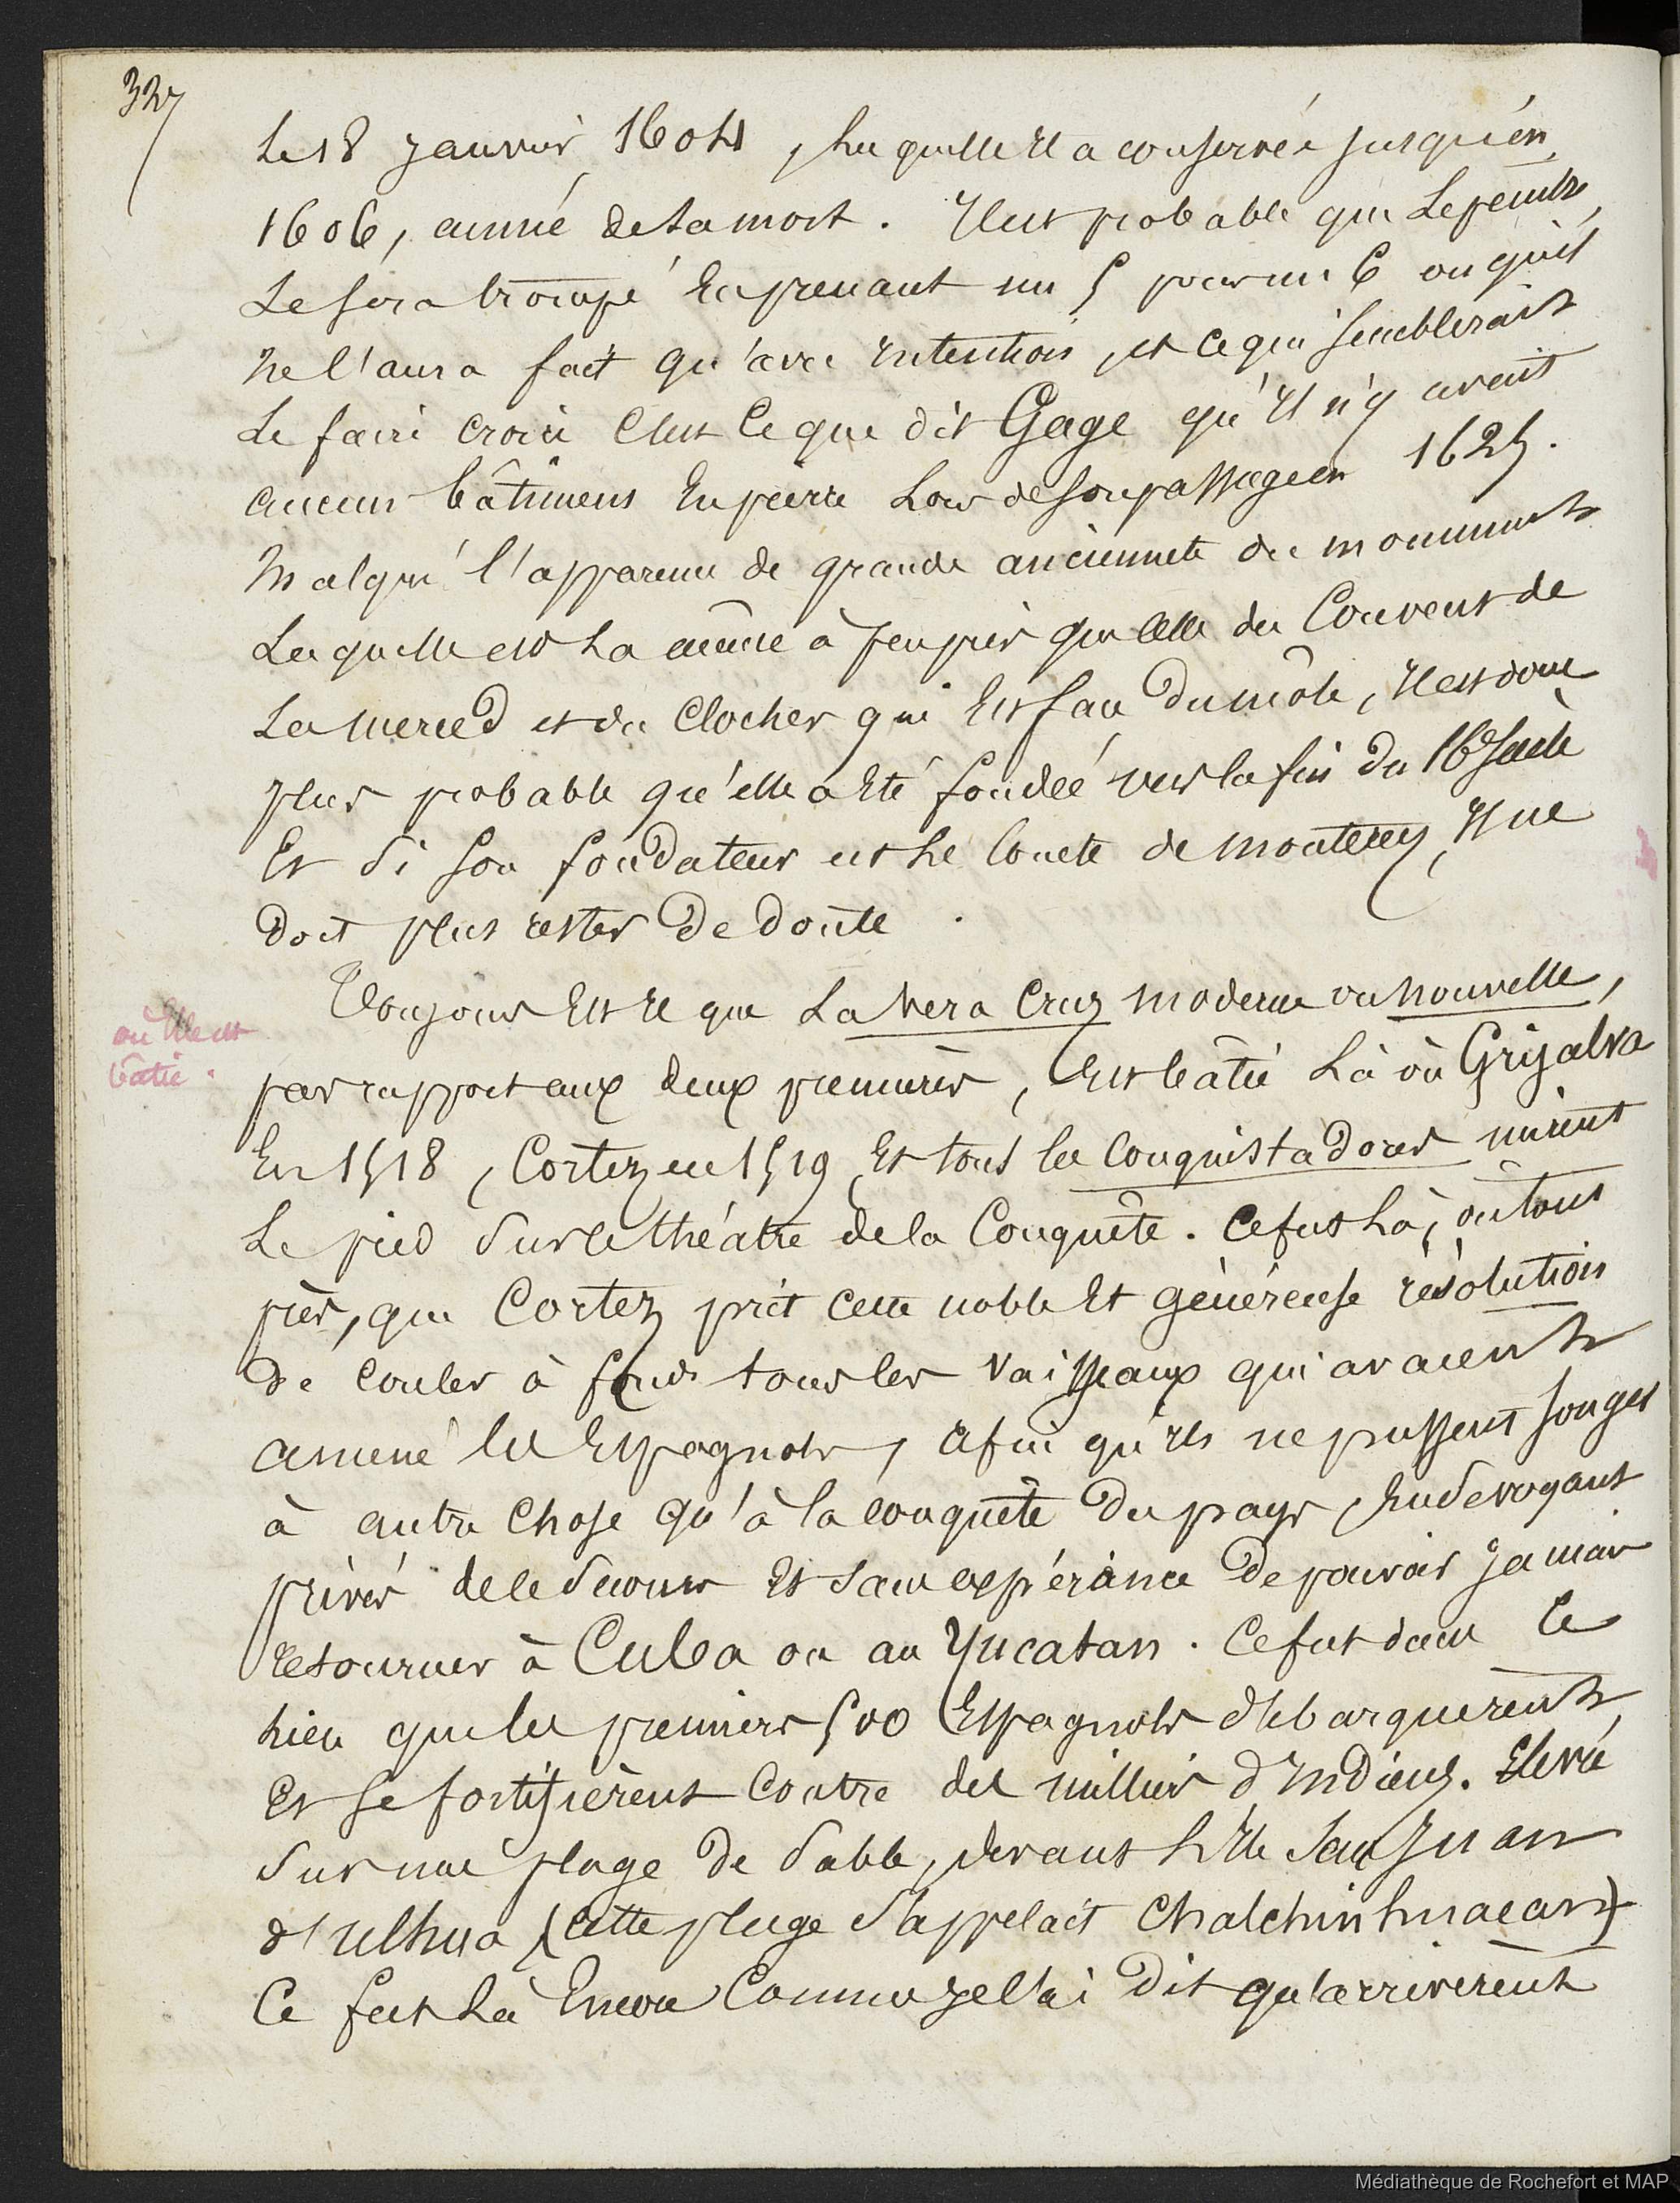 327
Le 18 Janvier 1604, Laquelle Il a conservée jusqu'én
1606, année de sa mort. Il est probable que Le peintre,
Le sera trompé En prenant un 5 pour un 6 ou qu'il
Ne l'aura fait qu'avec Intention, et ce qui semblerait
Le faire croire C'est Ce que dit Gage qu'Il n'y avait
aucun bâtiment En pierre Lors de son passage en 1625.
Malgré l'apparence de grande ancienneté du monument
Laquelle est La même à peu près que Celle du Couvent de
La Merced et du Clocher qui Est face du môle, Il est donc
plus probable qu'elle a Eté fondée vers la fin du 16e Siecle
Et Si Son fondateur est Le Comte de Monterey, Il ne
Doit plus rester De doute.
Toujours Est Il que La Vera Cruz moderne ou nouvelle,
où Elle est
bâtie.
par rapport aux deux premières, Est bâtie Là où Grijalva
En 1518, Cortez en 1519 Et tous les Conquistadores mirent
Le pied Sur le théâtre de la Conquête. Ce fut Là, ou tout
près, que Cortez prit cette noble Et généreuse résolution
De Couler à fond tous les Vaisseaux qui avaient
amené les Espagnols, afin qu'Ils ne pussent songer
à autre Chose qu'à la conquête Du pays, En Se voyant
privés de Secours Et Sans espérance De pouvoir Jamais
retourner à Cuba ou au Yucatan. Ce fut dans Ce
Lieu que les premiers 500 Espagnols débarquèrent
Et Se fortifièrent Contre des milliers d'Indiens. Elevée
Sur une plage De Sable, devant L'Ile San Juan
d'Ulhua (Cette plage S'appelait Chalchinhuacan)
Ce fut Là Encore Comme Je l'ai Dit qu'arrivèrent
Médiathèque de Rochefort et MAP